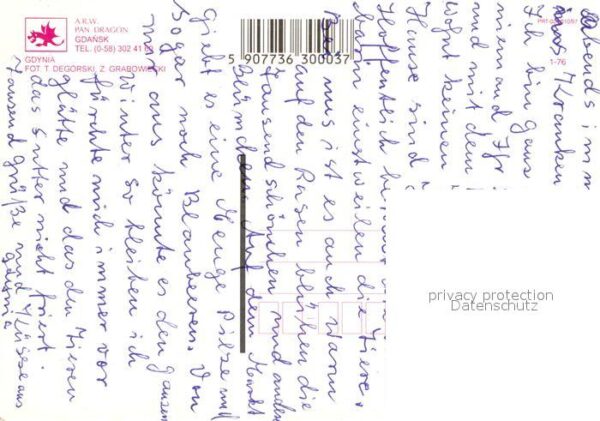 A.R.W.
PAN DRAGON
GDAŃSK
TEL. (0-58) 302 41
GDYNIA
FOT T. DEGÓRSKI, Z. GRABOWIECKI
5 907736 300037
1-76
abends im
Kranken
Ich bin ganz
niemand Ihr
und mit dem
wohnt keinen
Hause sind
Hoffentlich
kann einstweilen die Tiere
uns ist es auch warm
auf den Rasen blühen die
Tausendschönchen und andere
Blümchen. Auf dem Markt
giebt es eine Menge Pilze und
Sogar noch Blaubeeren. Von
mir aus könnte es den ganzen
Winter so bleiben ich
fürchte mich immer vor
glätte und das den Tieren
das Futter nicht friert.
Tausend grüße und Küsse aus
Gdynia
privacy protection
Datenschutz